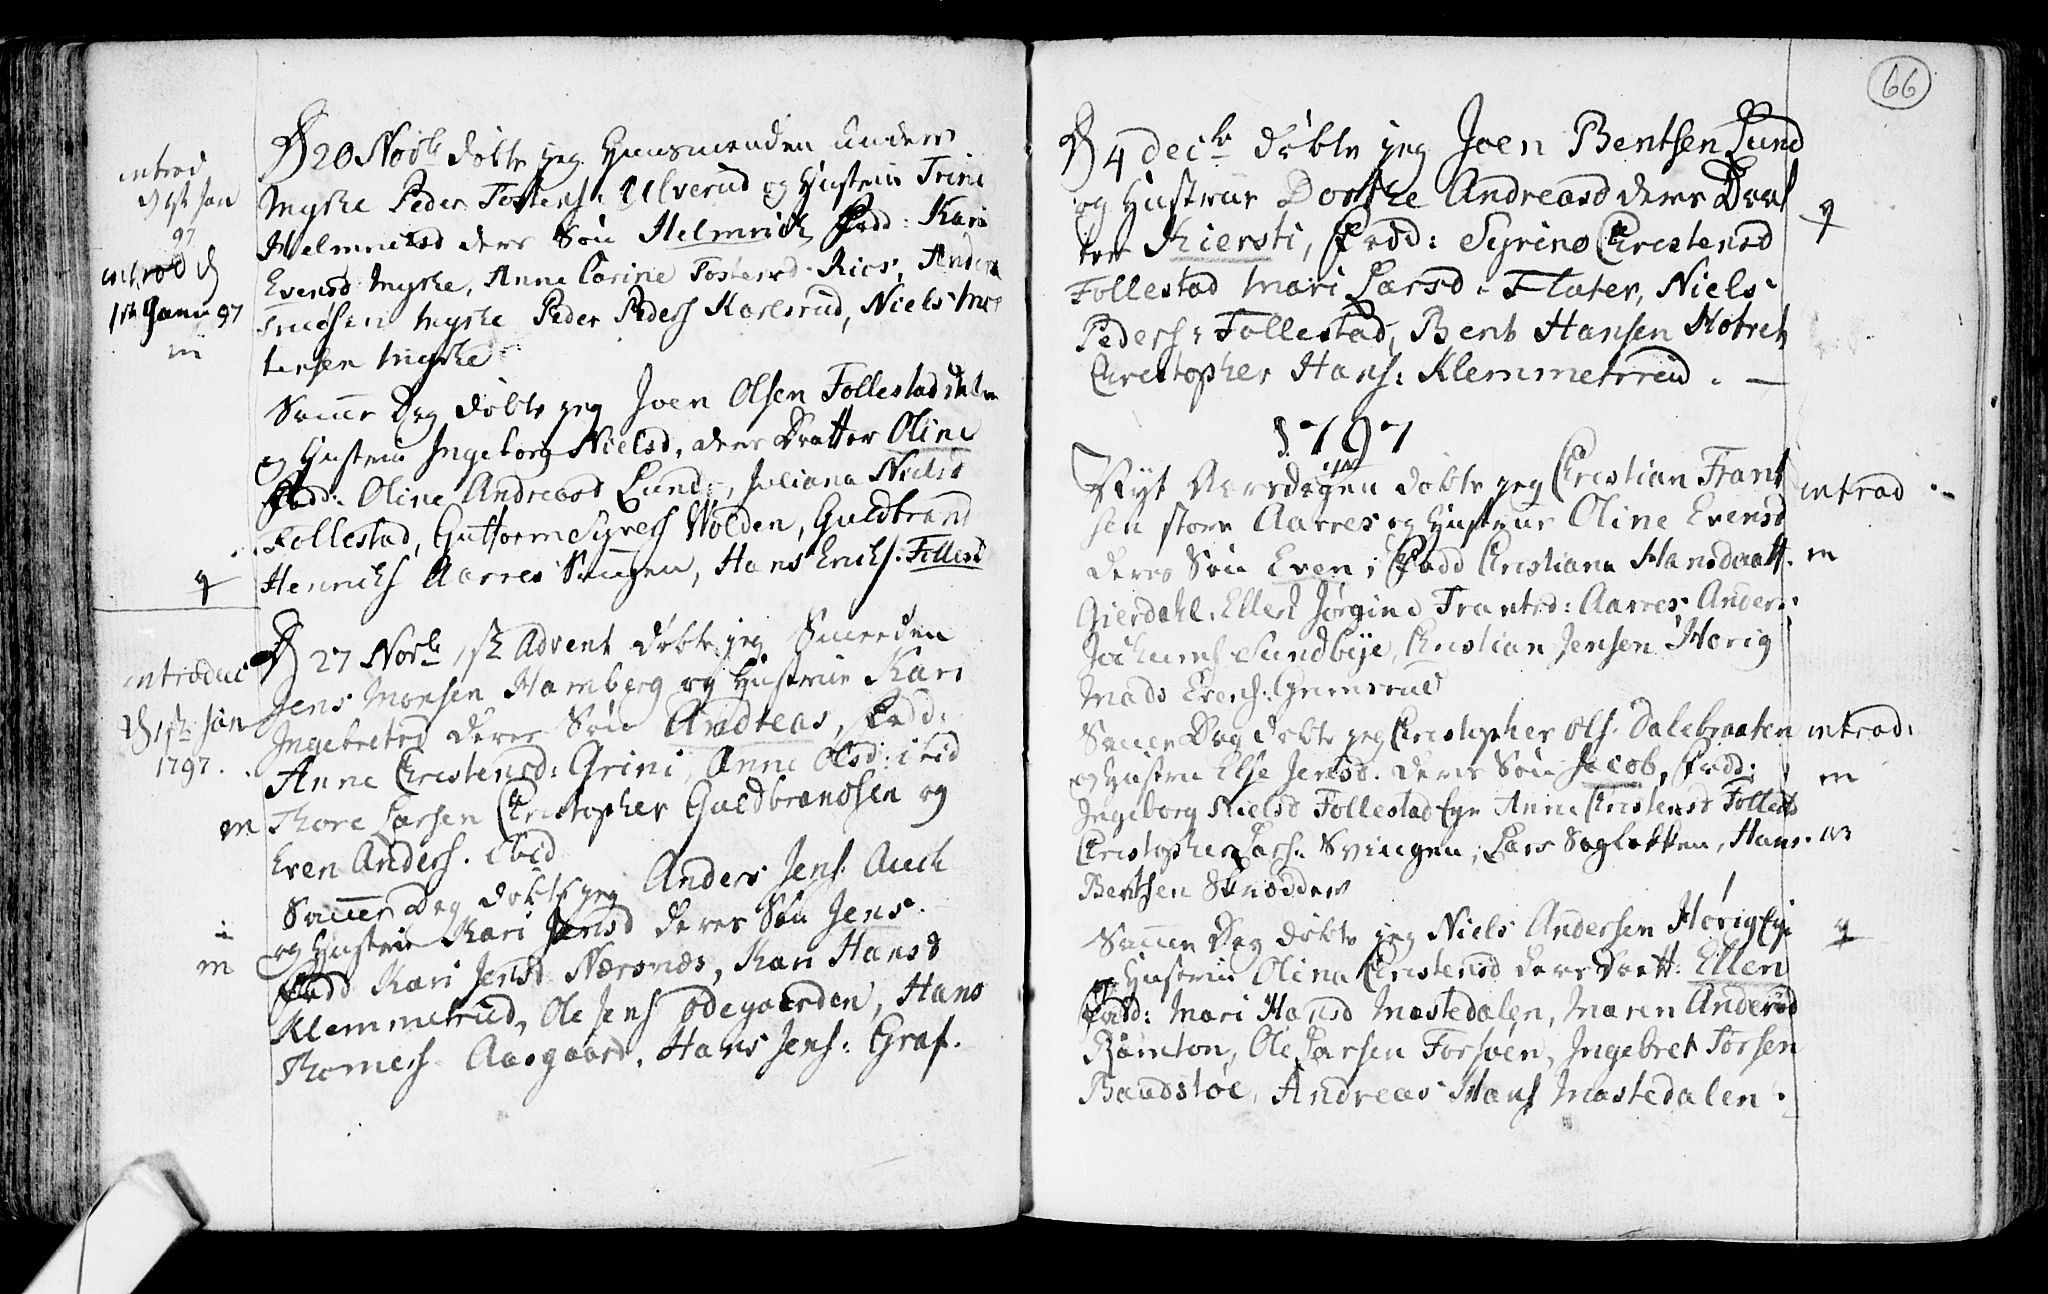 introd
d 1ste Jan
97
introd d
1ste Janu 97
m
D 20 Novbr döbte jeg Huusmanden under
Myhre Peder Tostens: Ulverud og Hustrue Trini
Helmricksd deres Sön Helmrich, Fadd: Kari
Evensd Myhre, Anne Carine Tostensd Ries, Anders
Truesen Myhre Peder Peders Karlsrud, Niels Mor
tensen Myhre
Samme Dag döbte jeg Joen Olsen Follestad
og Hustrue Ingeborg Nielsd, deres Datter Oline
Fadd: Oline Andreasd Lund, Juliana Nielsd
Follestad, Guttorm Syvers Wolden, Guldbrand
Henrichs Aarres Svingen, Hans Erichs. Follest
q
introduc
D 1ste Jan
1797.
D 27 Novbr 1ste Advent döbte jeg Smeeden
Jens Monsen Hamberg og Hustrue Kari
Ingebretsd deres Sön Andreas, Fadd:
Anne Christensd: Grini, Anne Olsd: ibid
m Thore Larsen Christopher Guldbrandsen og
Even Anders. ibid
Samme Dag döbte jeg Anders Jens. Auch
og Hustrue Kari Jensd deres Sön Jens.
m
Fadd Kari Jensd Nærsnæs, Kari Hansd
Klemmetrud, Ole Jens Ödegaarden, Hans
Thomess Aasgaard, Hans Jens: Graf.
66
D 4 Decbr döbte jeg Joen Bentsen Lund
og Hustrue Dorthe Andreasd deres Daat
ter Kiersti, Fadd: Syrine Christensd q
Follestad Mari Larsd: Flater, Niels
Peders: Follestad, Bent Hansen Hotvet
Christopher Hans: Klemmetrud. —
1797
Nyt Aarsdagen döbte jeg Christian Frant introd
sen store Aarres og Hustrue Oline Evensd
deres Sön Even, Fadd Christiana Hansdaatt. m
Gierdahl, Ellen Jörgine Frantsd: Aarres Anders
Jochums Sundbye, Christian Jensen Hörig
Mads Evens: Grimsrud
Samme Dag döbte jeg Christopher Ols. Dalebraaten introd:
og Hustru Else Jensd. deres Sön Jacob, Fadd: m
Ingeborg Nielsd Follestad Eye Anne Christensd Follest
Christopher Lars. Svingen, Lars Sagløkken, Hans
Bentsen Skrædder
Samme Dag döbte jeg Niels Andersen Hörig Eye q
og Hustrue Olina Christensd deres Daatt: Ellen
Fadd: Mari Hansd Mostedalen, Maren Andersd
Ramton, Ole Larsen Forsøen, Ingebret Torsen
Baudstoe, Andreas Hans Mostedalen.